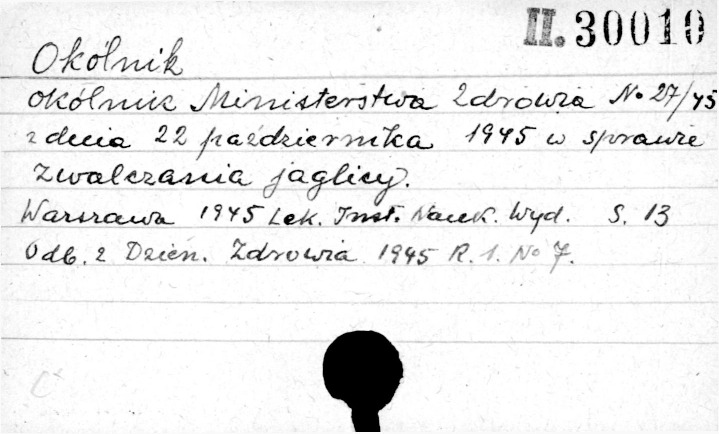 II. 30010
Okólnik
Okólnik Ministerstwa Zdrowia No 27/45
z dnia 22 października 1945 w sprawie
zwalczania jaglicy.
Warszawa 1945 Lek. Inst. Nauk. Wyd. S. 13
Odb. z Dzien. Zdrowia 1945 R. 1. No 7.